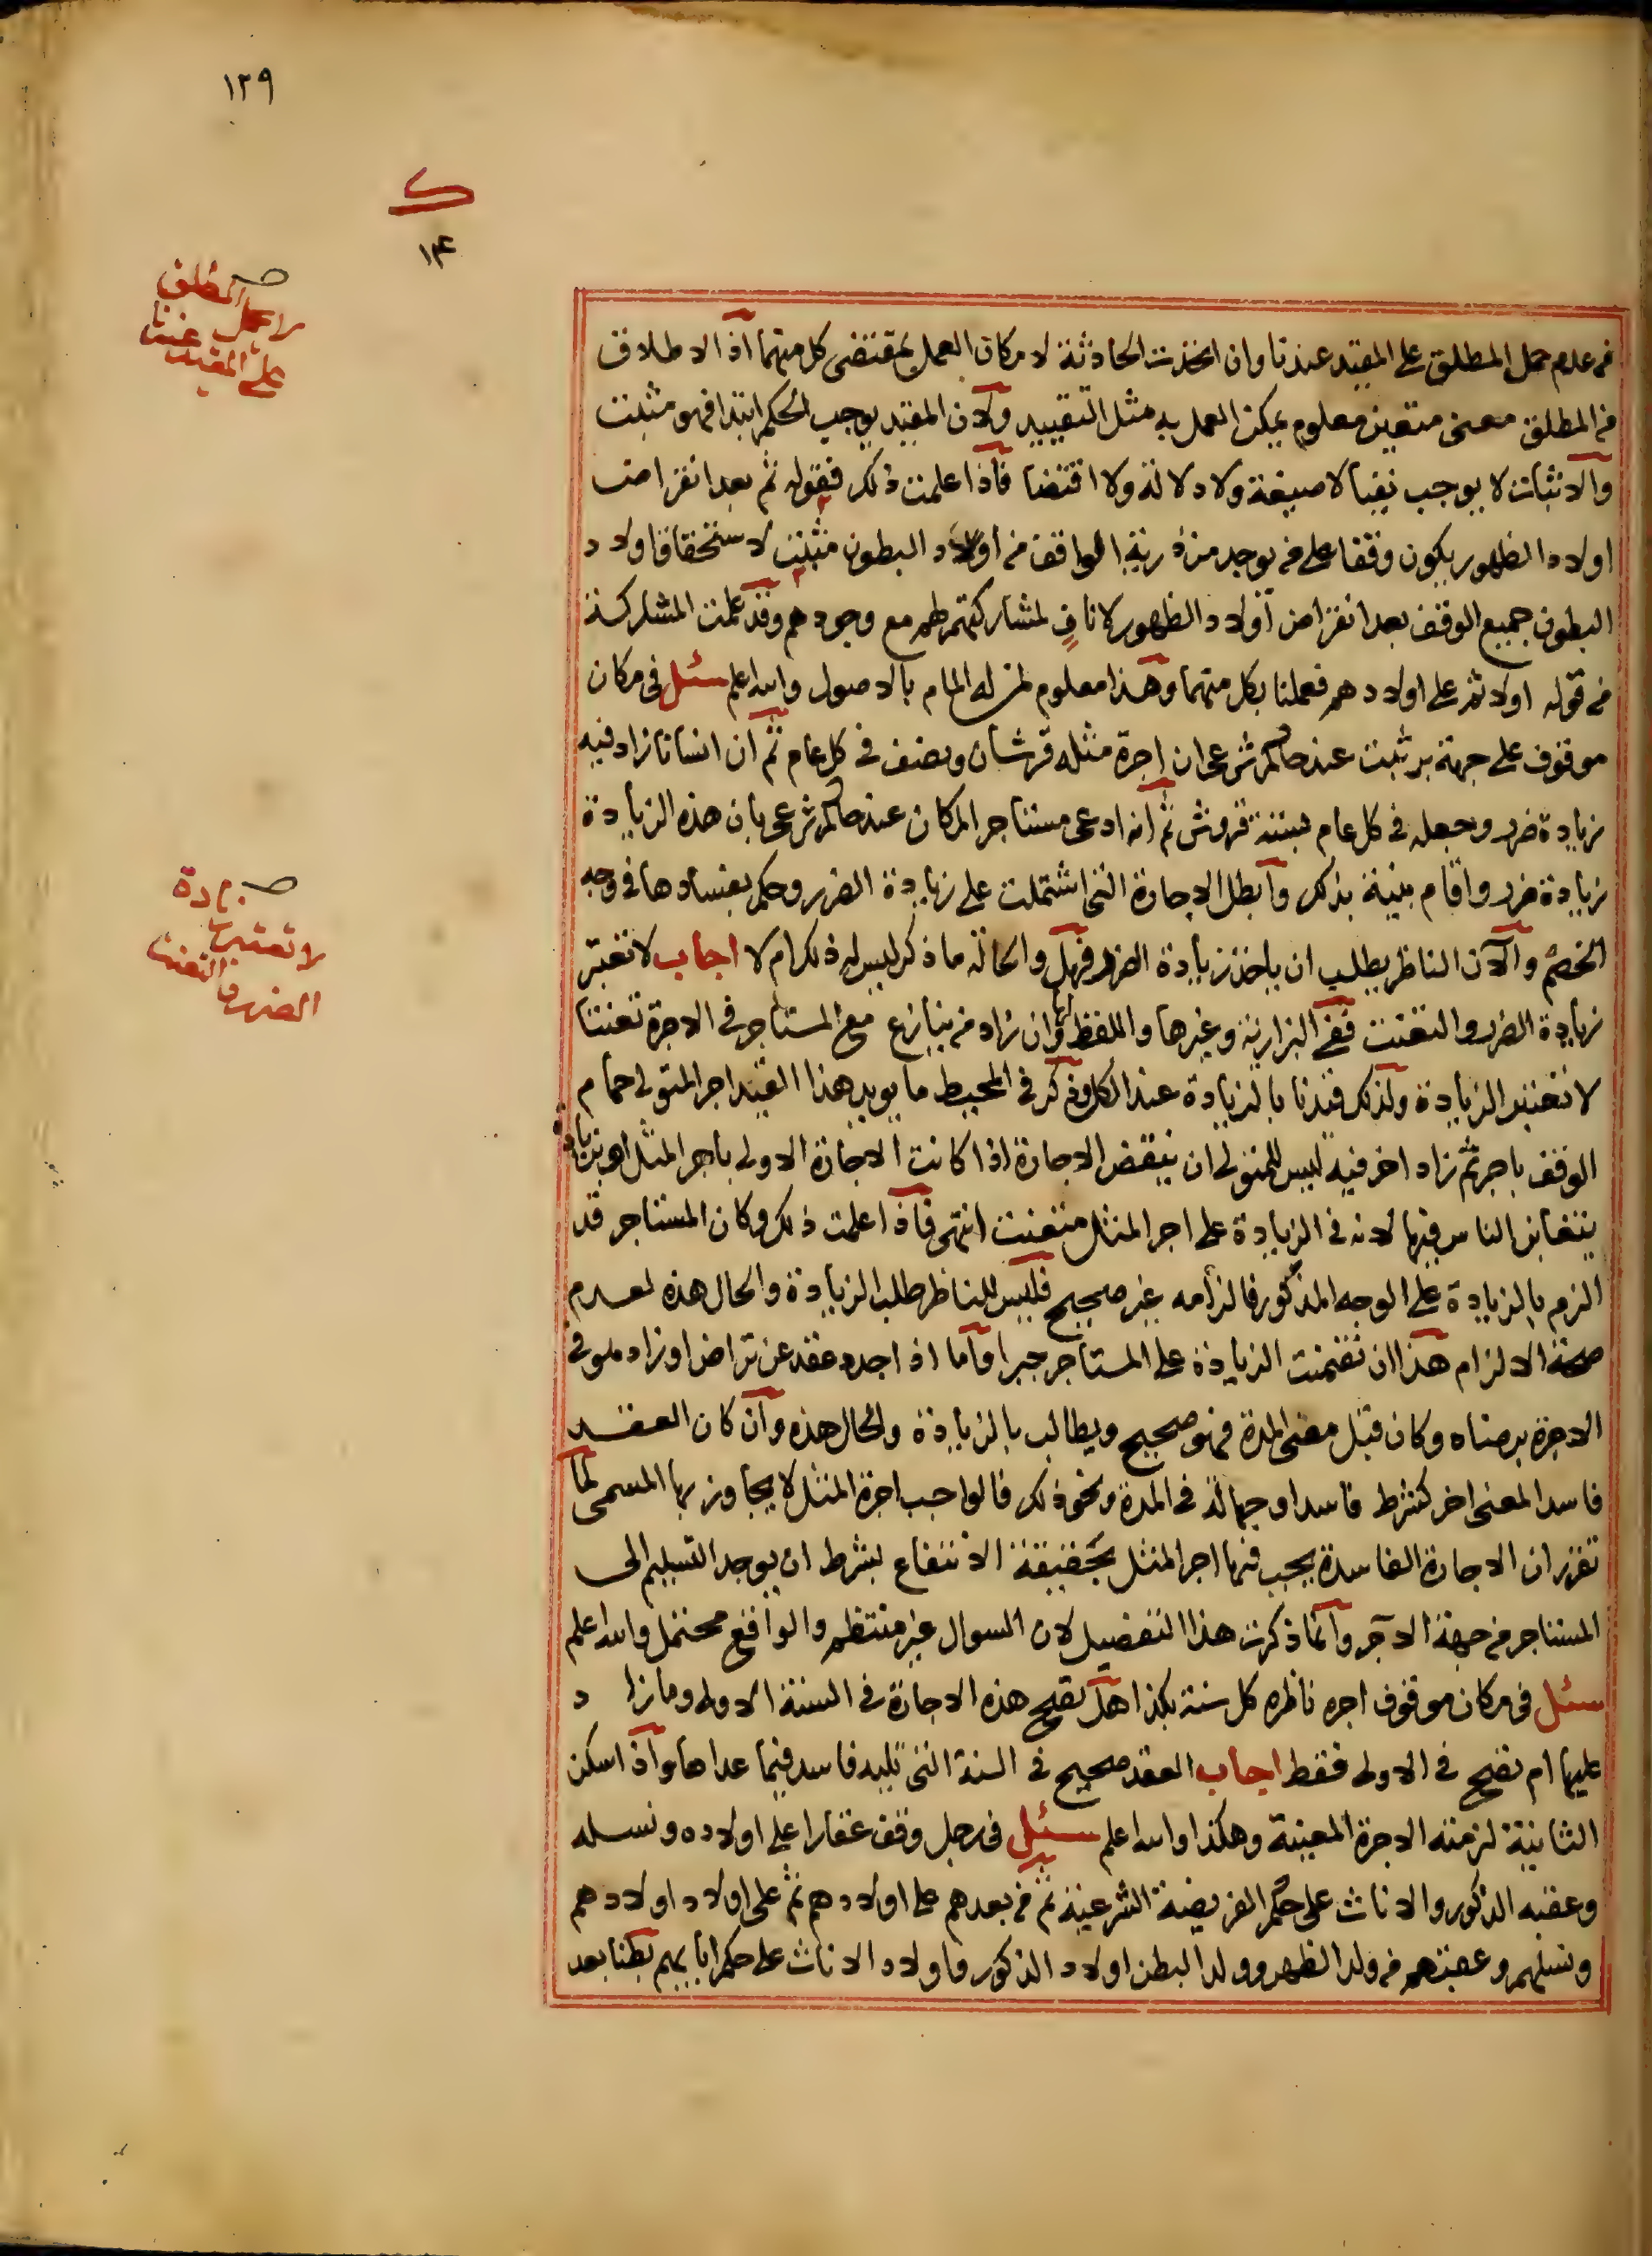 ١٢٩
ك
١٤
لا يحمل المطلق
على المقيد عندنا
من عدم حمل المطلق على المقيد عندنا وان اتحدت الحادثة لامكان العمل بمقتضى كل منهما اذ الاطلاق
من المطلق معنى متعين معلوم يمكن العمل به مثل التقييد ولان المقيد يوجب الحكم ابتدا فهو مثبت
والاثبات لا يوجب نفيا لا صيغة ولا دلالة ولا اقتضا فاذا علمت ذلك فقوله ثم بعد انقراض
اولاد الظهور يكون وقفا على من يوجد من ذرية الواقف من اولاد البطون مثبت لاستحقاق اولاد
البطون جميع الوقف بعد انقراض اولاد الظهور لا نافٍ لمشاركتهم لهم مع وجودهم وقد علمت المشاركة
من قوله اولا ثم على اولادهم فعملنا بكل منهما وهذا معلوم لمن له المام بالاصول والله اعلم سئل فى مكان
موقوف على جهة بر ثبت عند حاكم شرعى ان اجرة مثله قرشان ونصف فى كل عام ثم ان انسانا زاد فيه
زيادة ضرر وجعله فى كل عام بستة قروش ثم انه ادعى مستاجر المكان عند حاكم شرعى بان هذه الزيادة
زيادة ضرر واقام بينة بذلك وابطل الاجارة التى اشتملت على زيادة الضرر وحكم بفسادها فى وجه
الخصم والان الناظر يطلب ان ياخذ زيادة الضرر فهل والحالة ما ذكر ليس له ذلك ام لا اجاب لا تعتبر
زيادة الضرر والتعنت ففى البزازية وغيرها واللفظ لها وان زاد من ينازع مع المستاجر فى الاجرة تعنتا
لا تعتبر الزيادة ولذلك قيدنا بالزيادة عند الكل وذكر فى المحيط ما يويد هذا القيد اجر المتولى حمام
الوقف باجر ثم زاد اخر فيه ليس للمتولى ان ينقض الاجارة اذا كانت الاجارة الاولى باجر المثل او بزيادة
يتغابن الناس فيها لانه فى الزيادة على اجر المثل متعنت انتهى فاذا علمت ذلك وكان المستاجر قد
الزم بالزيادة على الوجه المذكور فالزامه غير صحيح فليس للناظر طلب الزيادة والحال هذه لعدم
صحة الالزام هذا ان تضمنت الزيادة على المستاجر جبرا واما اذا جدد عقد عن تراض او زاد هو فى
الاجرة برضاه وكان قبل مضى المدة فهو صحيح ويطالب بالزيادة والحال هذه وان كان العقد
فاسدا لمعنى اخر كشرط فاسد او جهالة فى المدة ونحو ذلك فالواجب اجرة المثل لا يجاوز بها المسمى لما
تقرر ان الاجارة الفاسدة يجب فيها اجر المثل بحقيقة الانتفاع بشرط ان يوجد التسليم الى
المستاجر من جهة الآجر وانما ذكرت هذا التفصيل لان السوال غير منتظم والواقع محتمل والله اعلم
سئل فى مكان موقوف اجره ناظره كل سنة بكذا هل تصح هذه الاجارة فى السنة الاولى وما زاد
عليها ام تصح فى الاولى فقط اجاب العقد صحيح فى السنة التى تليه فاسد فيما عداها واذا سكن
الثانية لزمته الاجرة المعينة وهكذا والله اعلم سئل فى رجل وقف عقارا على اولاده ونسله
وعقبه الذكور والاناث على حكم الفريضة الشرعية ثم من بعدهم على اولادهم ثم على اولاد اولادهم
ونسلهم وعقبهم من ولد الظهر وولد البطن اولاد الذكور واولاد الاناث على حكم ابايهم بطنا بعد
لا تعتبر زيادة
الضرر والتعنت